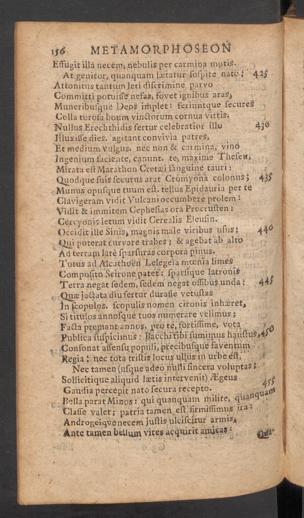 156 METAMORPHOSEON
Effugit illa necem, nebulis per carmina motis.
At genitor, quanquam lætatur sospite nato; 425
Attonitus tantum leti discrimine parvo
Committi potuisse nefas, fovet ignibus aras,
Muneribusque Deos implet: feriuntque secures
Colla torosa boum vinctorum cornua vittis.
Nullus Erechthidis fertur celebratior illo 430
Illuxisse dies. agitant convivia patres,
Et medium vulgus. nec non & carmina, vino
Ingenium faciente, canunt. te, maxime Theseu,
Mirata est Marathon Cretæi sanguine tauri:
Quodque suis securus arat Cromyona colonus; 435
Munus opusque tuum est. tellus Epidauria per te
Clavigeram vidit Vulcani occumbere prolem:
Vidit & immitem Cephesias ora Procrusten:
Cercyonis letum vidit Cerealis Eleusin.
Occidit ille Sinis, magnis male viribus usus; 440
Qui poterat curvare trabes; & agebat ab alto
Ad terram late sparsuras corpora pinus.
Tutus ad Alcathoën Lelegeia mœnia limes
Composito Scirone patet: sparsisque latronis
Terra negat sedem, sedem negat ossibus unda: 445
Quæ jactata diu fertur durasse vetustas
In scopulos. scopulis nomen Scironis inhæret,
Si titulos annosque tuos numerare velimus;
Facta premant annos. pro te, fortissime, vota
Publica suscipimus: Bacchi tibi sumimus haustus, 450
Consonat assensu populi, precibusque faventum
Regia; nec tota tristis locus ullus in urbe est,
Nec tamen (usque adeo nulli sincera voluptas;
Sollicitique aliquid lætis intervenit) Ægeus
Gaudia percepit nato secura recepto. 455
Bella parat Minos: qui quanquam milite, quanquam
Classe valet; patria tamen est firmissimus ira:
Androgeique necem justis ulciscitur armis,
Ante tamen bellum vires acquirit amicas: